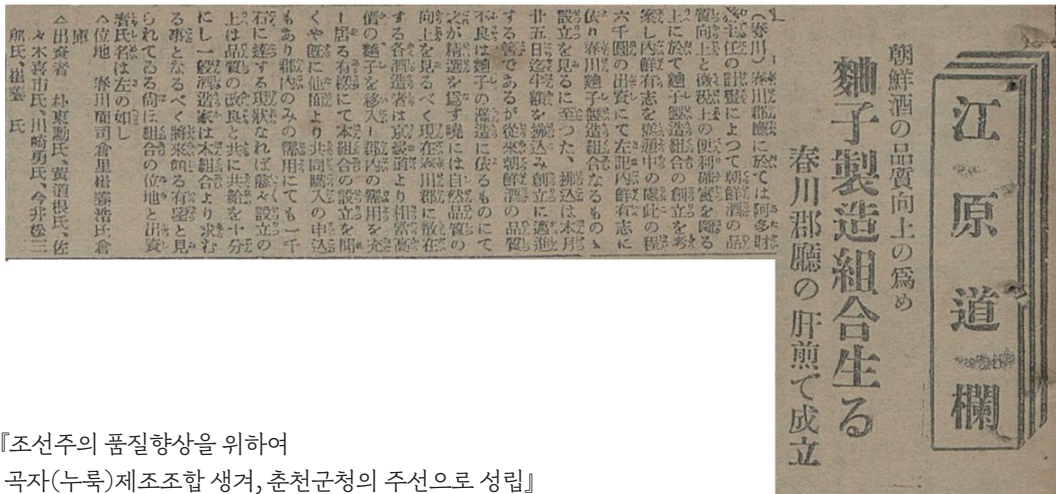 江原道欄
朝鮮酒の品質向上の爲め
麯子製造組合生る
春川郡廳の肝煎で成立
(春川)春川郡廳に於ては阿多財
務主任の計畫によつて朝鮮酒の品
質向上と徴税上の便利確實を圖る
上に於て麯子製造組合の創立を考
案し内鮮有志を慫慂中の處此の程
六千圓の出資にて左記内鮮有志に
依り春川麯子製造組合なるものゝ
設立を見るに至つた、拂込は本月
廿五日迄半額を拂込み創立に邁進
する筈であるが從來朝鮮酒の品質
不良は麯子の濫造に依るものにて
之が精選を爲す曉には自然品質の
向上を見るべく現在春川郡に散在
する各酒造者は京畿道より相當高
價の麯子を移入し郡内の需用を充
し居る有樣にて本組合の設立を聞
くや既に他面より共同購入の申込
もあり郡内のみの需用にても一千
石に達する現狀なれば愈々設立の
上は品質の改良と共に共給を十分
にし一般酒造家は本組合より求む
る事となるべく將來頗る有望と見
られてゐる尚ほ組合の位地と出資
者氏名は左の如し
△位地 春川面司倉里崔養浩氏倉
庫
△出資者 朴東勳氏、黃 根氏、佐
々木喜市氏、川崎勇氏、今井松三
郎氏、崔養 氏
『조선주의 품질향상을 위하여
곡자(누룩)제조조합 생겨, 춘천군청의 주선으로 성립』